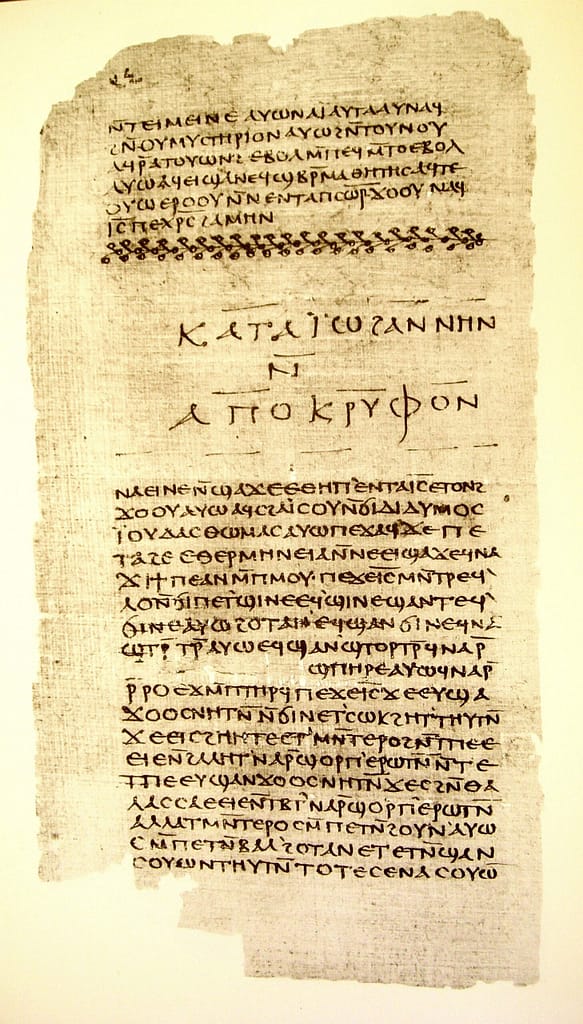 ⲛ̄ⲧⲉⲓⲙⲉⲓⲛⲉ ⲁⲩⲱ ⲛⲁⲓ ⲁⲩⲧⲁⲁⲩ ⲛⲁϥ
ϩⲛ̄ⲟⲩⲙⲩⲥⲧⲏⲣⲓⲟⲛ ⲁⲩⲱ ϩⲛ̄ⲧⲟⲩⲛⲟⲩ
ⲁϥⲣ̄ⲁⲧⲟⲩⲱⲛϩ ⲉⲃⲟⲗ ⲙ̄ⲡⲉϥⲙ̄ⲧⲟ ⲉⲃⲟⲗ
ⲁⲩⲱ ⲁϥⲉⲓ ϣⲁⲛⲉϥϣⲃⲣ̄ⲙⲁⲑⲏⲧⲏⲥ ⲁϥⲧⲉ
ⲟⲩⲱ ⲉⲣⲟⲟⲩ ⲛ̄ⲛⲉⲛⲧⲁⲡⲥⲱ̅ⲣ̅ ϫⲟⲟⲩ ⲛⲁϥ
ⲓ̅ⲥ̅ ⲡⲉⲭ̅ⲣ̅ⲥ̅ ϩⲁⲙⲏⲛ
ⲕⲁⲧⲁ ⲓ̈ⲱϩⲁⲛⲛⲏⲛ
ⲛ̄
ⲁⲡⲟⲕⲣⲩⲫⲟⲛ
ⲛⲁⲉⲓ ⲛⲉ ⲛ̄ϣⲁϫⲉ ⲉⲑⲏⲡ ⲉⲛⲧⲁⲓ̅ⲥ̅ ⲉⲧⲟⲛϩ
ϫⲟⲟⲩ ⲁⲩⲱ ⲁϥⲥϩⲁⲓⲥⲟⲩ ⲛ̄ϭⲓ ⲇⲓⲇⲩⲙⲟⲥ
ⲓ̈ⲟⲩⲇⲁⲥ ⲑⲱⲙⲁⲥ ⲁⲩⲱ ⲡⲉϫⲁϥ ϫⲉ ⲡⲉ
ⲧⲁϩⲉ ⲉⲑⲉⲣⲙⲏⲛⲉⲓⲁ ⲛ̄ⲛⲉⲉⲓϣⲁϫⲉ ϥⲛⲁ
ϫⲓϯⲡⲉ ⲁⲛ ⲙ̄ⲡⲙⲟⲩ ⲡⲉϫⲉⲓ̅ⲥ̅ ⲙⲛ̄ⲧⲣⲉϥ
ⲗⲟ ⲛ̄ϭⲓ ⲡⲉⲧϣⲓⲛⲉ ⲉϥϣⲓⲛⲉ ϣⲁⲛⲧⲉϥ
ϭⲓⲛⲉ ⲁⲩⲱ ϩⲟⲧⲁⲛ ⲉϥϣⲁⲛϭⲓⲛⲉ ϥⲛⲁ
ϣⲧⲣ̄ⲧⲣ̄ ⲁⲩⲱ ⲉϥϣⲁⲛϣⲧⲟⲣⲧⲣ̄ ϥⲛⲁⲣ̄
ϣⲡⲏⲣⲉ ⲁⲩⲱ ϥⲛⲁⲣ̄
ⲣ̄ⲣⲟ ⲉϫⲙ̄ⲡⲧⲏⲣϥ ⲡⲉϫⲉⲓ̅ⲥ̅ ϫⲉ ⲉⲩϣⲁ
ϫⲟⲟⲥ ⲛⲏⲧⲛ̄ ⲛ̄ϭⲓ ⲛⲉⲧⲥⲱⲕ ϩⲏⲧⲧⲏⲩⲧⲛ̄
ϫⲉ ⲉⲓⲥϩⲏⲏⲧⲉ ⲉⲧⲙⲛ̄ⲧⲉⲣⲟ ϩⲛ̄ⲧⲡⲉ ⲉ
ⲉⲓⲉ ⲛ̄ϩⲁⲗⲏⲧ ⲛⲁⲣ̄ϣⲟⲣⲡ ⲉⲣⲱⲧⲛ̄ ⲛ̄ⲧⲉ
ⲧⲡⲉ ⲉⲩϣⲁⲛϫⲟⲟⲥ ⲛⲏⲧⲛ̄ ϫⲉ ⲥϩⲛ̄ⲑⲁ
ⲗⲁⲥⲥⲁ ⲉⲉⲓⲉ ⲛ̄ⲧⲃⲧ ⲛⲁⲣ̄ϣⲟⲣⲡ ⲉⲣⲱⲧⲛ̄
ⲁⲗⲗⲁ ⲧⲙⲛ̄ⲧⲉⲣⲟ ⲥⲙ̄ⲡⲉⲧⲛ̄ϩⲟⲩⲛ ⲁⲩⲱ
ⲥⲙ̄ⲡⲉⲧⲛ̄ⲃⲁⲗ ϩⲟⲧⲁⲛ ⲉⲧⲉⲧⲛ̄ϣⲁⲛ
ⲥⲟⲩⲱⲛ ⲧⲏⲩⲧⲛ̄ ⲧⲟⲧⲉ ⲥⲉⲛⲁⲥⲟⲩⲱ